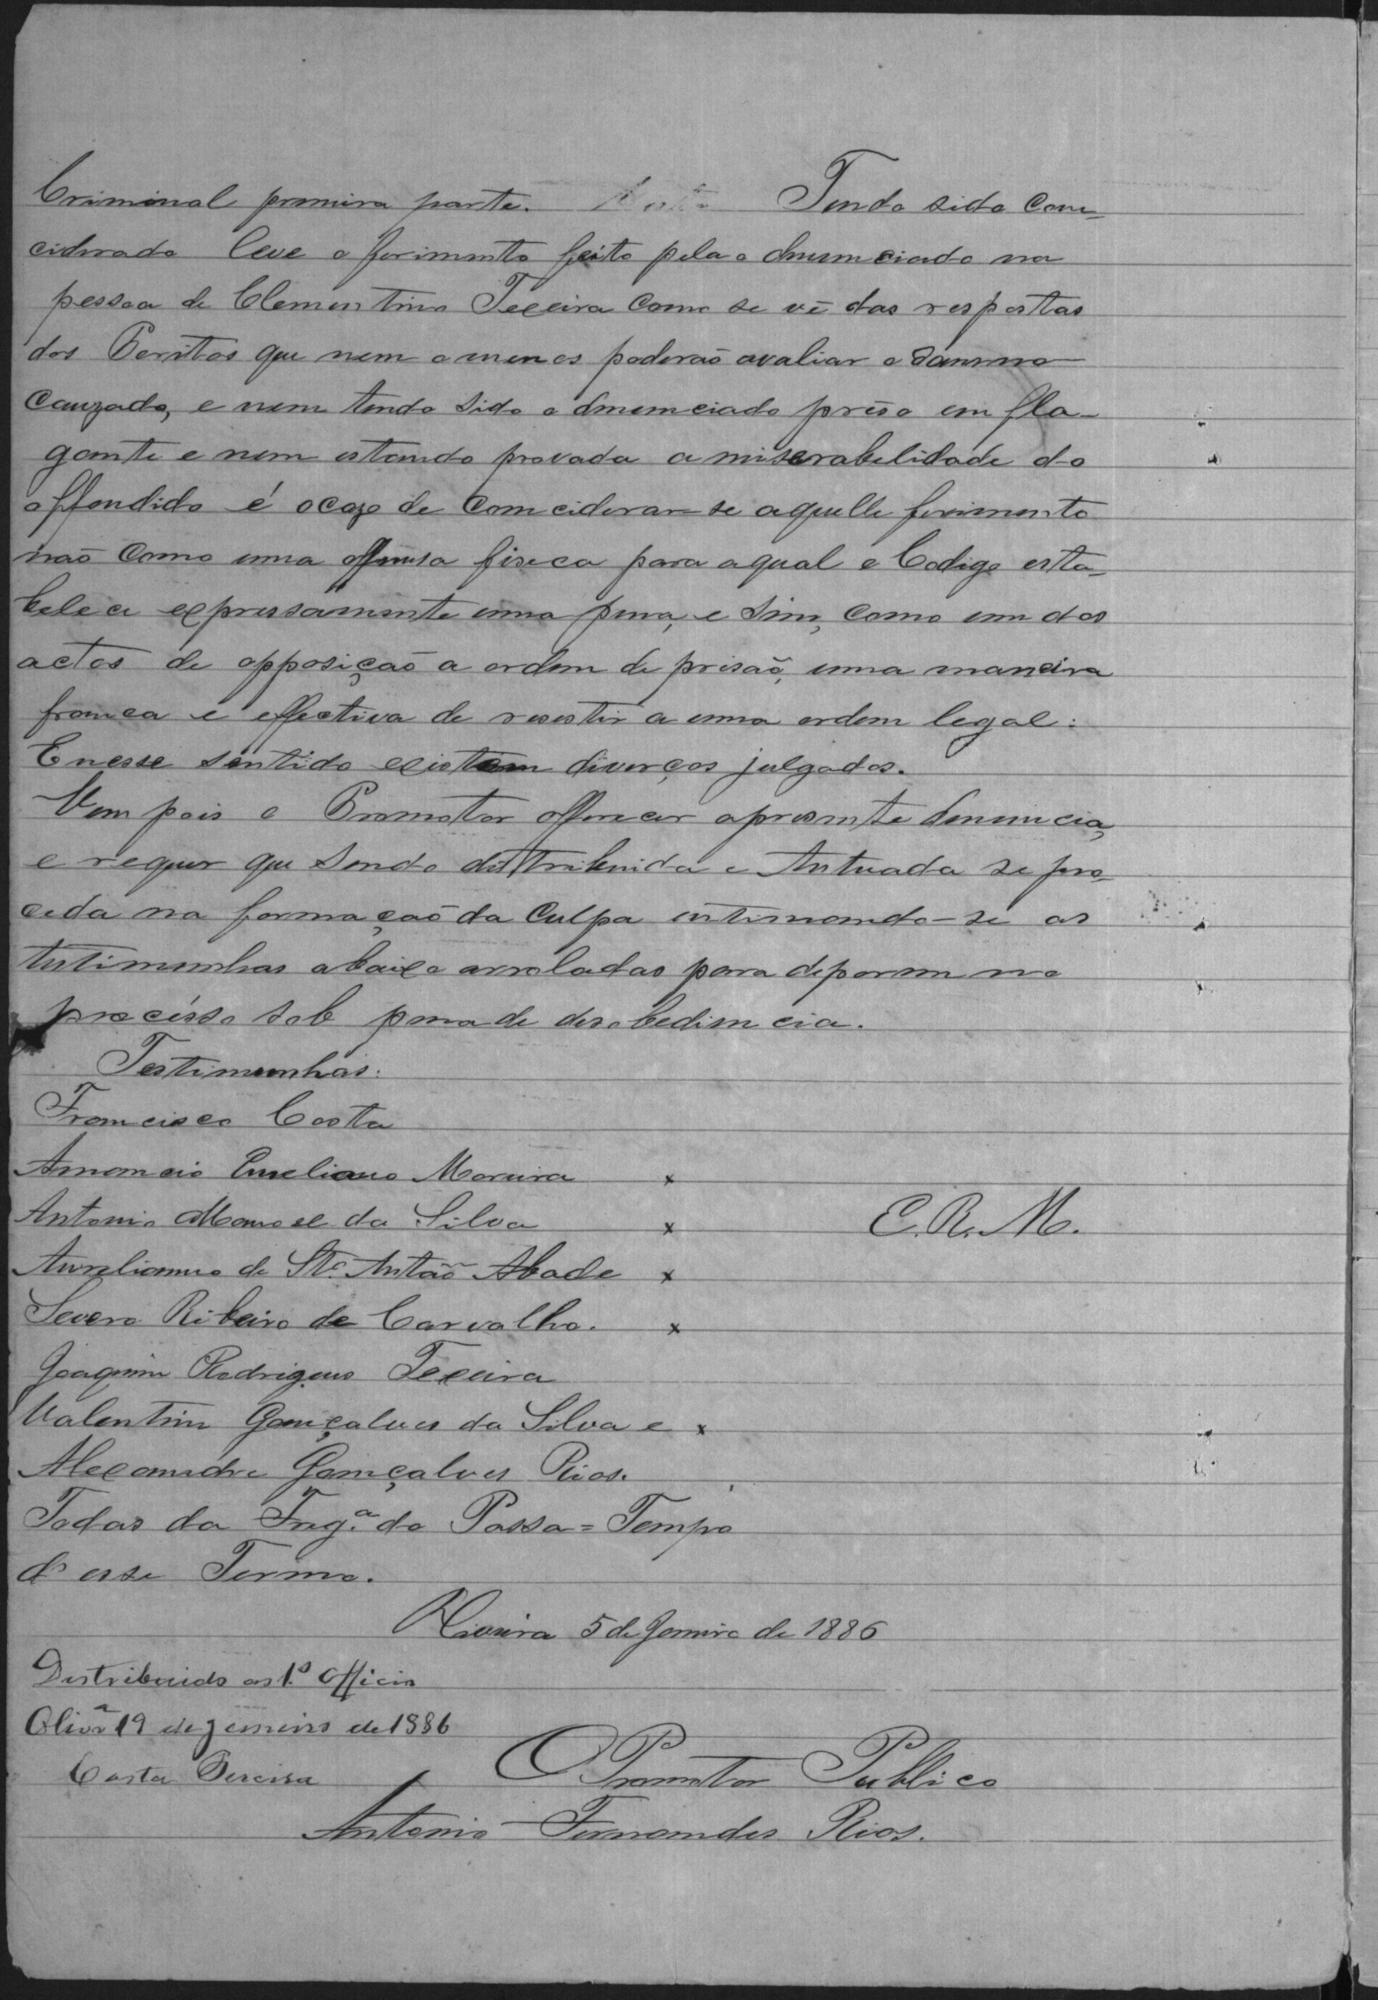 Criminal primeira parte. Tendo sido con-
ciderado leve o ferimento feito pelo o denunciado na
pessoa de Clementino Teixeira como se vê das respostas
dos Peritos que nem o menos poderão avaliar o damno
cauzado, e nem tendo sido o denunciado prêso em fla-
gante e nem estando provada a miserabelidade do
offendido é o cazo de conciderar-se aquelle ferimento
não como uma offensa fiseca para a qual o Codigo esta-
belece expressamente uma pena, e sim, como um dos
actos de opposição a ordem de prisão, uma maneira
franca e effectiva de resestir a uma ordem legal:
E nesse sentido existem diverços julgados.
Vem pois o Promotor offerecer a presente denuncia,
e requer que sendo destribuida e Autuada se pro-
ceda na formação da Culpa intimando-se as
testimunhas abaixo arroladas para deporem no
procésso sob pena de desobediencia.
Testimunhas:
Francisco Costa
Amancio Emeliano Moreira x
Antonio Manoel da Silva x E. R. M.
Aureliano de Stº Antão Abade x
Severo Ribeiro de Carvalho. x
Joaquim Rodrigues Teixeira
Valentim Gonçalves da Silva e x
Alexandre Gonçalves Rios.
Todas da Freg.ª do Passa=Tempo
d'esse Termo.
Oliveira 5 de Janeiro de 1886
Destribuido ao 1.º Officio
Olivrª 19 de janeiro de 1886
Costa Pereira
O Promotor Publico
Antonio Fernandes Rios.